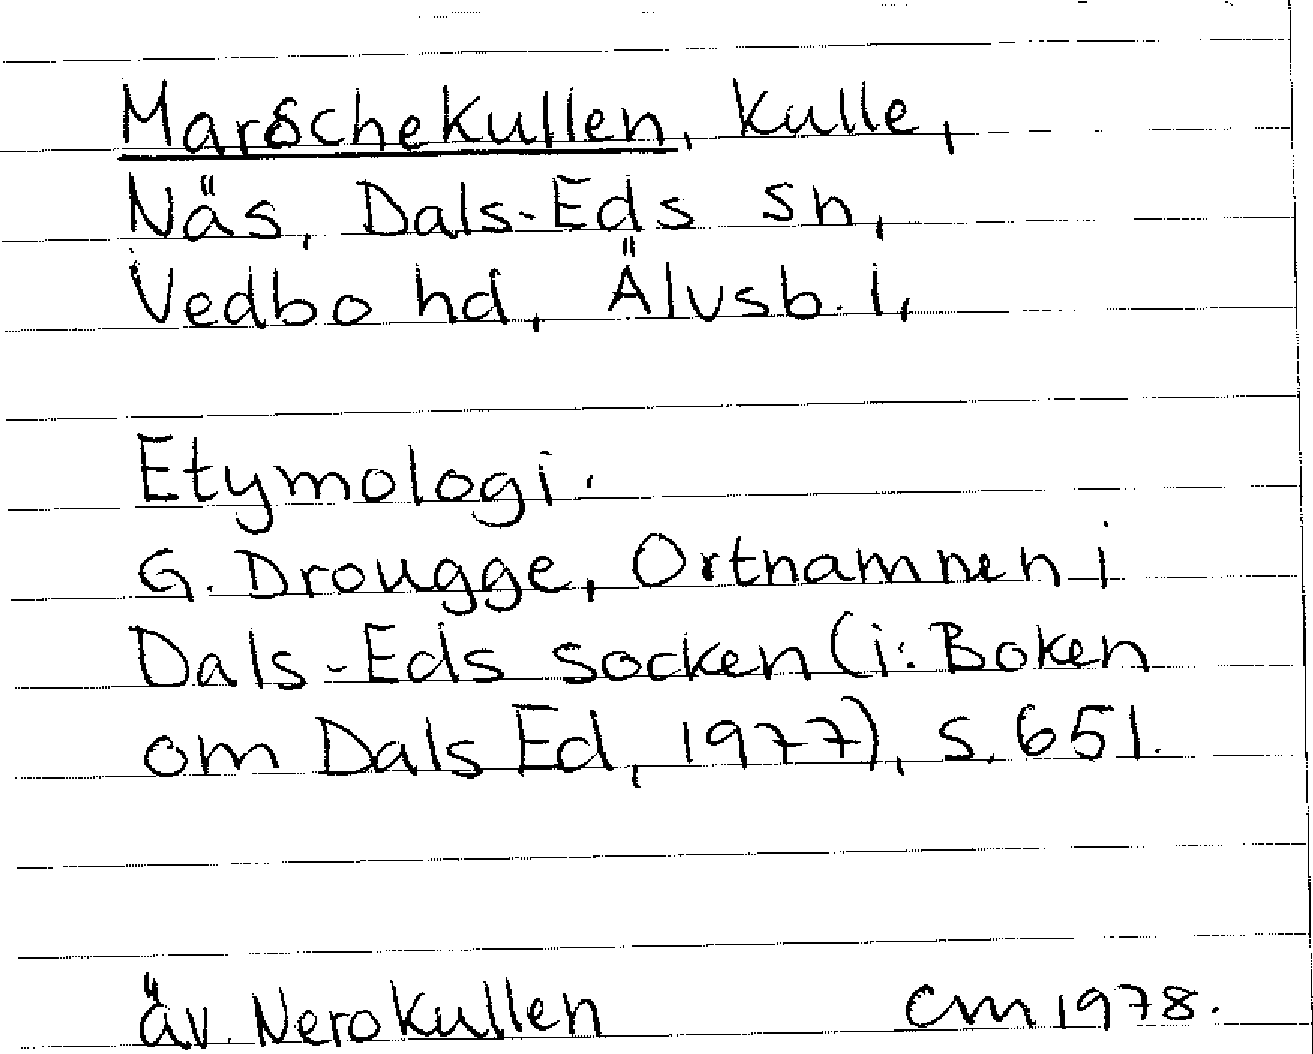 Marschekullen, kulle,
Näs, Dals-Eds sn,
Vedbo hd, Älvsb. l,
Etymologi:
G. Drougge, Ortnamnen i
Dals-Eds socken (i: Boken
om Dals Ed, 1977), s. 651.
äv. Nerokullen cm 1978.